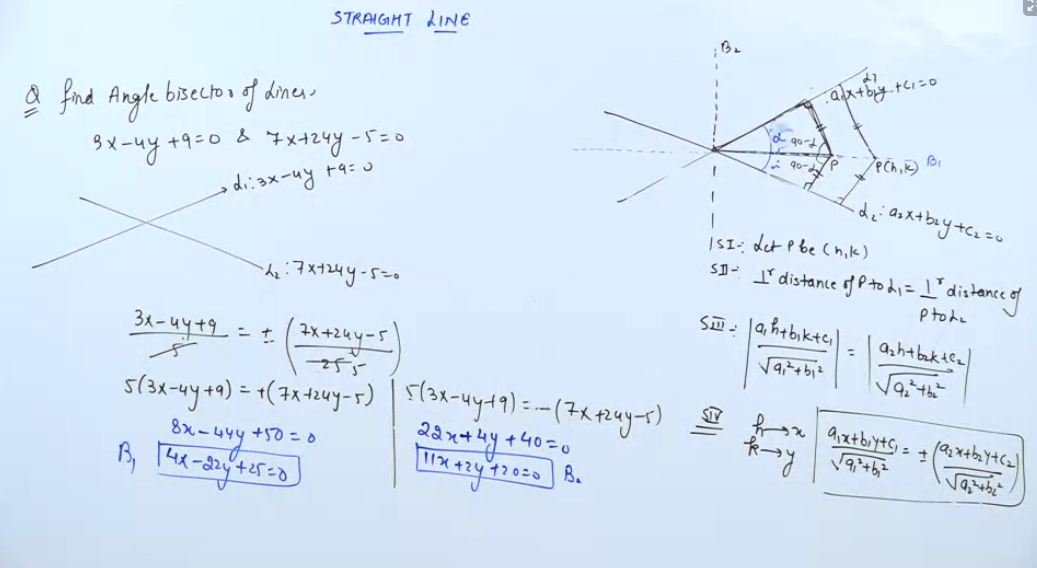 STRAIGHT LINE
Q find Angle bisector of Lines.
3x-4y+9=0 & 7x+24y-5=0
L1: 3x-4y+9=0
L2: 7x+24y-5=0
(3x-4y+9)/5 = ± ((7x+24y-5)/25 5)
5(3x-4y+9) = +(7x+24y-5)
8x-44y+50=0
B1 4x-22y+25=0
5(3x-4y+9) = -(7x+24y-5)
22x+4y+40=0
11x+2y+20=0 B2
B2
L1
a1x+b1y+c1=0
α 90-α
α 90-α
P
P(h,k) B1
L2: a2x+b2y+c2=0
SI-: Let P be (h,k)
SII-: ⊥r distance of P to L1 = ⊥r distance of
P to L2
SIII-: |(a1h+b1k+c1)/√(a1²+b1²)| = |(a2h+b2k+c2)/√(a2²+b2²)|
SIV h→x
k→y
(a1x+b1y+c1)/√(a1²+b1²) = ± ((a2x+b2y+c2)/√(a2²+b2²))